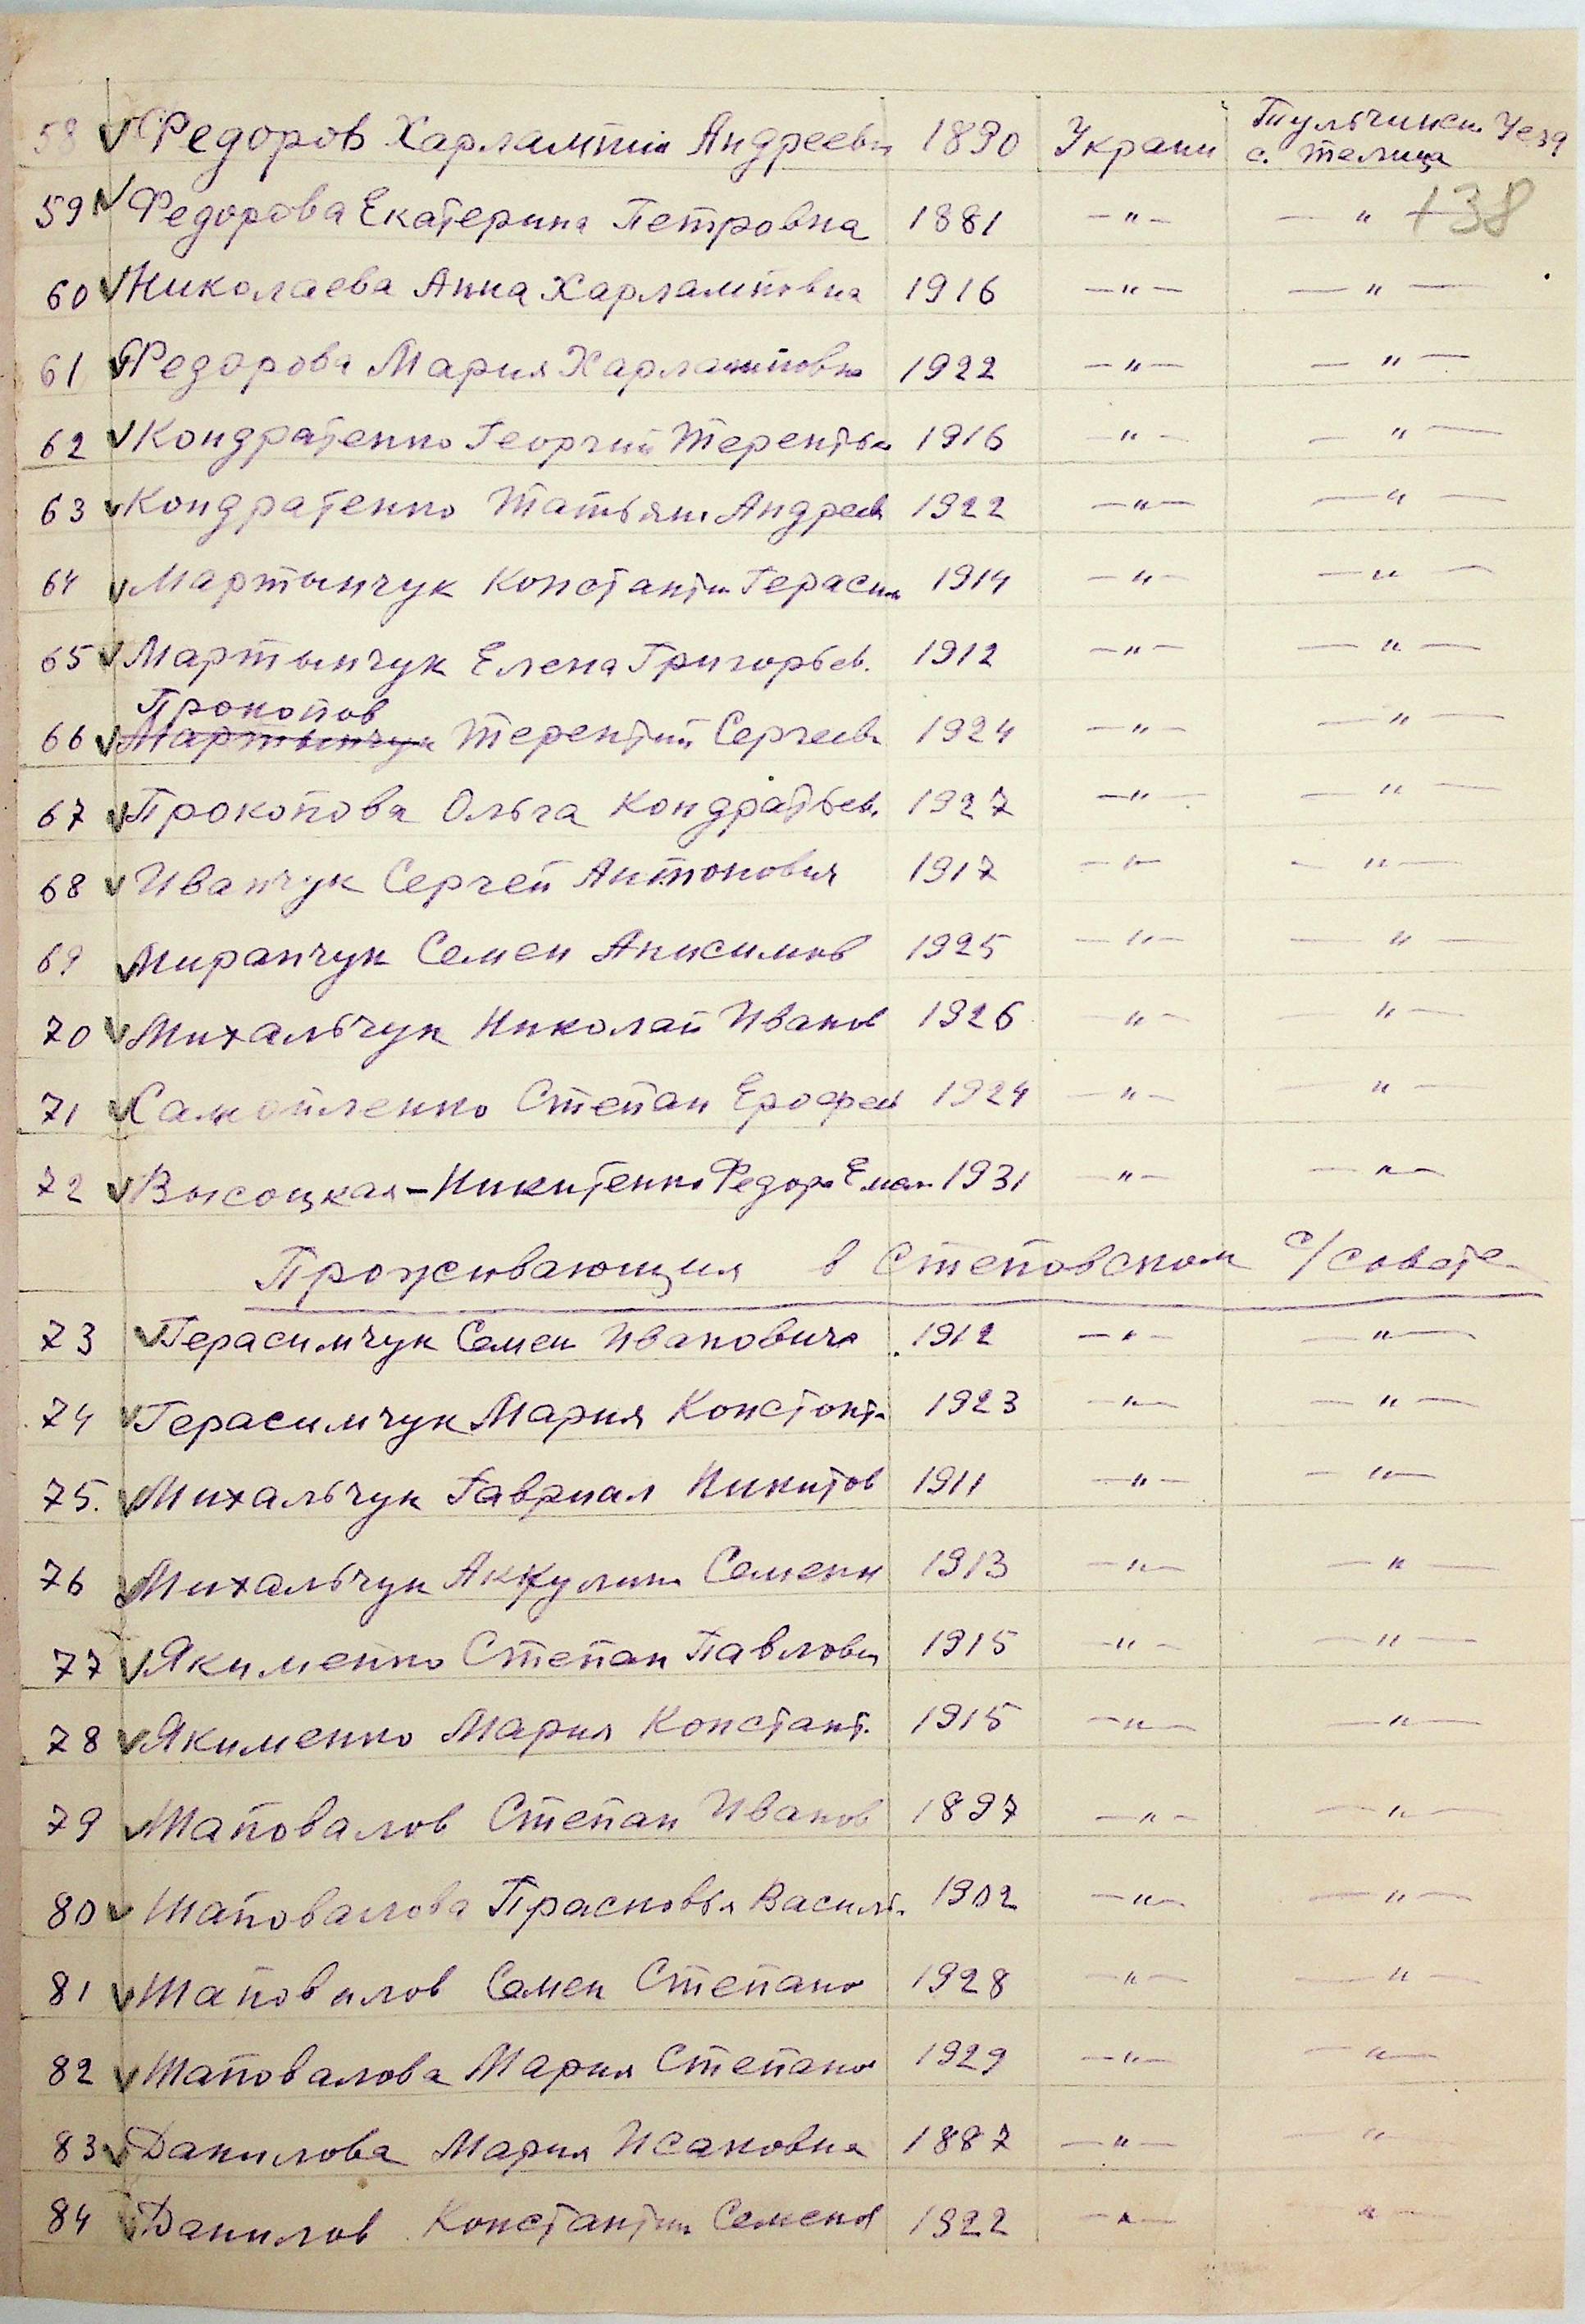 58 V Федоров Харлампии Андреевич 1890 Украин Тульчинск. Уезд с. Телица
59 V Федорова Екатерина Петровна 1881 —"— —"— +38
60 V Николаева Анна Харламповна 1916 —"— —"—
61 V Федорова Мария Харламповна 1922 —"— —"—
62 V Кондратенко Георгий Терентьев 1916 —"— —"—
63 V Кондратенко Татьяна Андреев 1922 —"— —"—
64 V Мартынчук Константин Герасим 1914 —"— —"—
65 V Мартынчук Елена Григорьев. 1912 —"— —"—
Прокопов
66 V Мартынчук Терентий Сергеев 1924 —"— —"—
67 V Прокопова Ольга Кондратьев. 1927 —"— —"—
68 V Иванчук Сергей Антонович 1917 —"— —"—
69 V Миранчук Семен Анисимов 1925 —"— —"—
70 V Михальчук Николай Иванов 1926 —"— —"—
71 V Самойленко Степан Ерофеев 1924 —"— —"—
72 V Высоцкая-Никитенко Федора Емел. 1931 —"— —"—
Проживающия в Степовском с/совете
73 V Герасимчук Семен Иванович 1912 —"— —"—
74 V Герасимчук Мария Констонт. 1923 —"— —"—
75. V Михальчук Гавриал Никитов 1911 —"— —"—
76 V Михальчук Аккулина Семени 1913 —"— —"—
77 V Якименко Степан Павлови 1915 —"— —"—
78 V Якименко Мария Констант. 1915 —"— —"—
79 V Шаповалов Степан Иванов 1897 —"— —"—
80 V Шаповалова Прасковья Василь. 1902 —"— —"—
81 V Шаповалов Семен Степано 1928 —"— —"—
82 V Шаповалова Мария Степано 1929 —"— —"—
83 V Данилова Мария Исаковна 1887 —"— —"—
84 V Данилов Константин Семенов 1922 —"— —"—